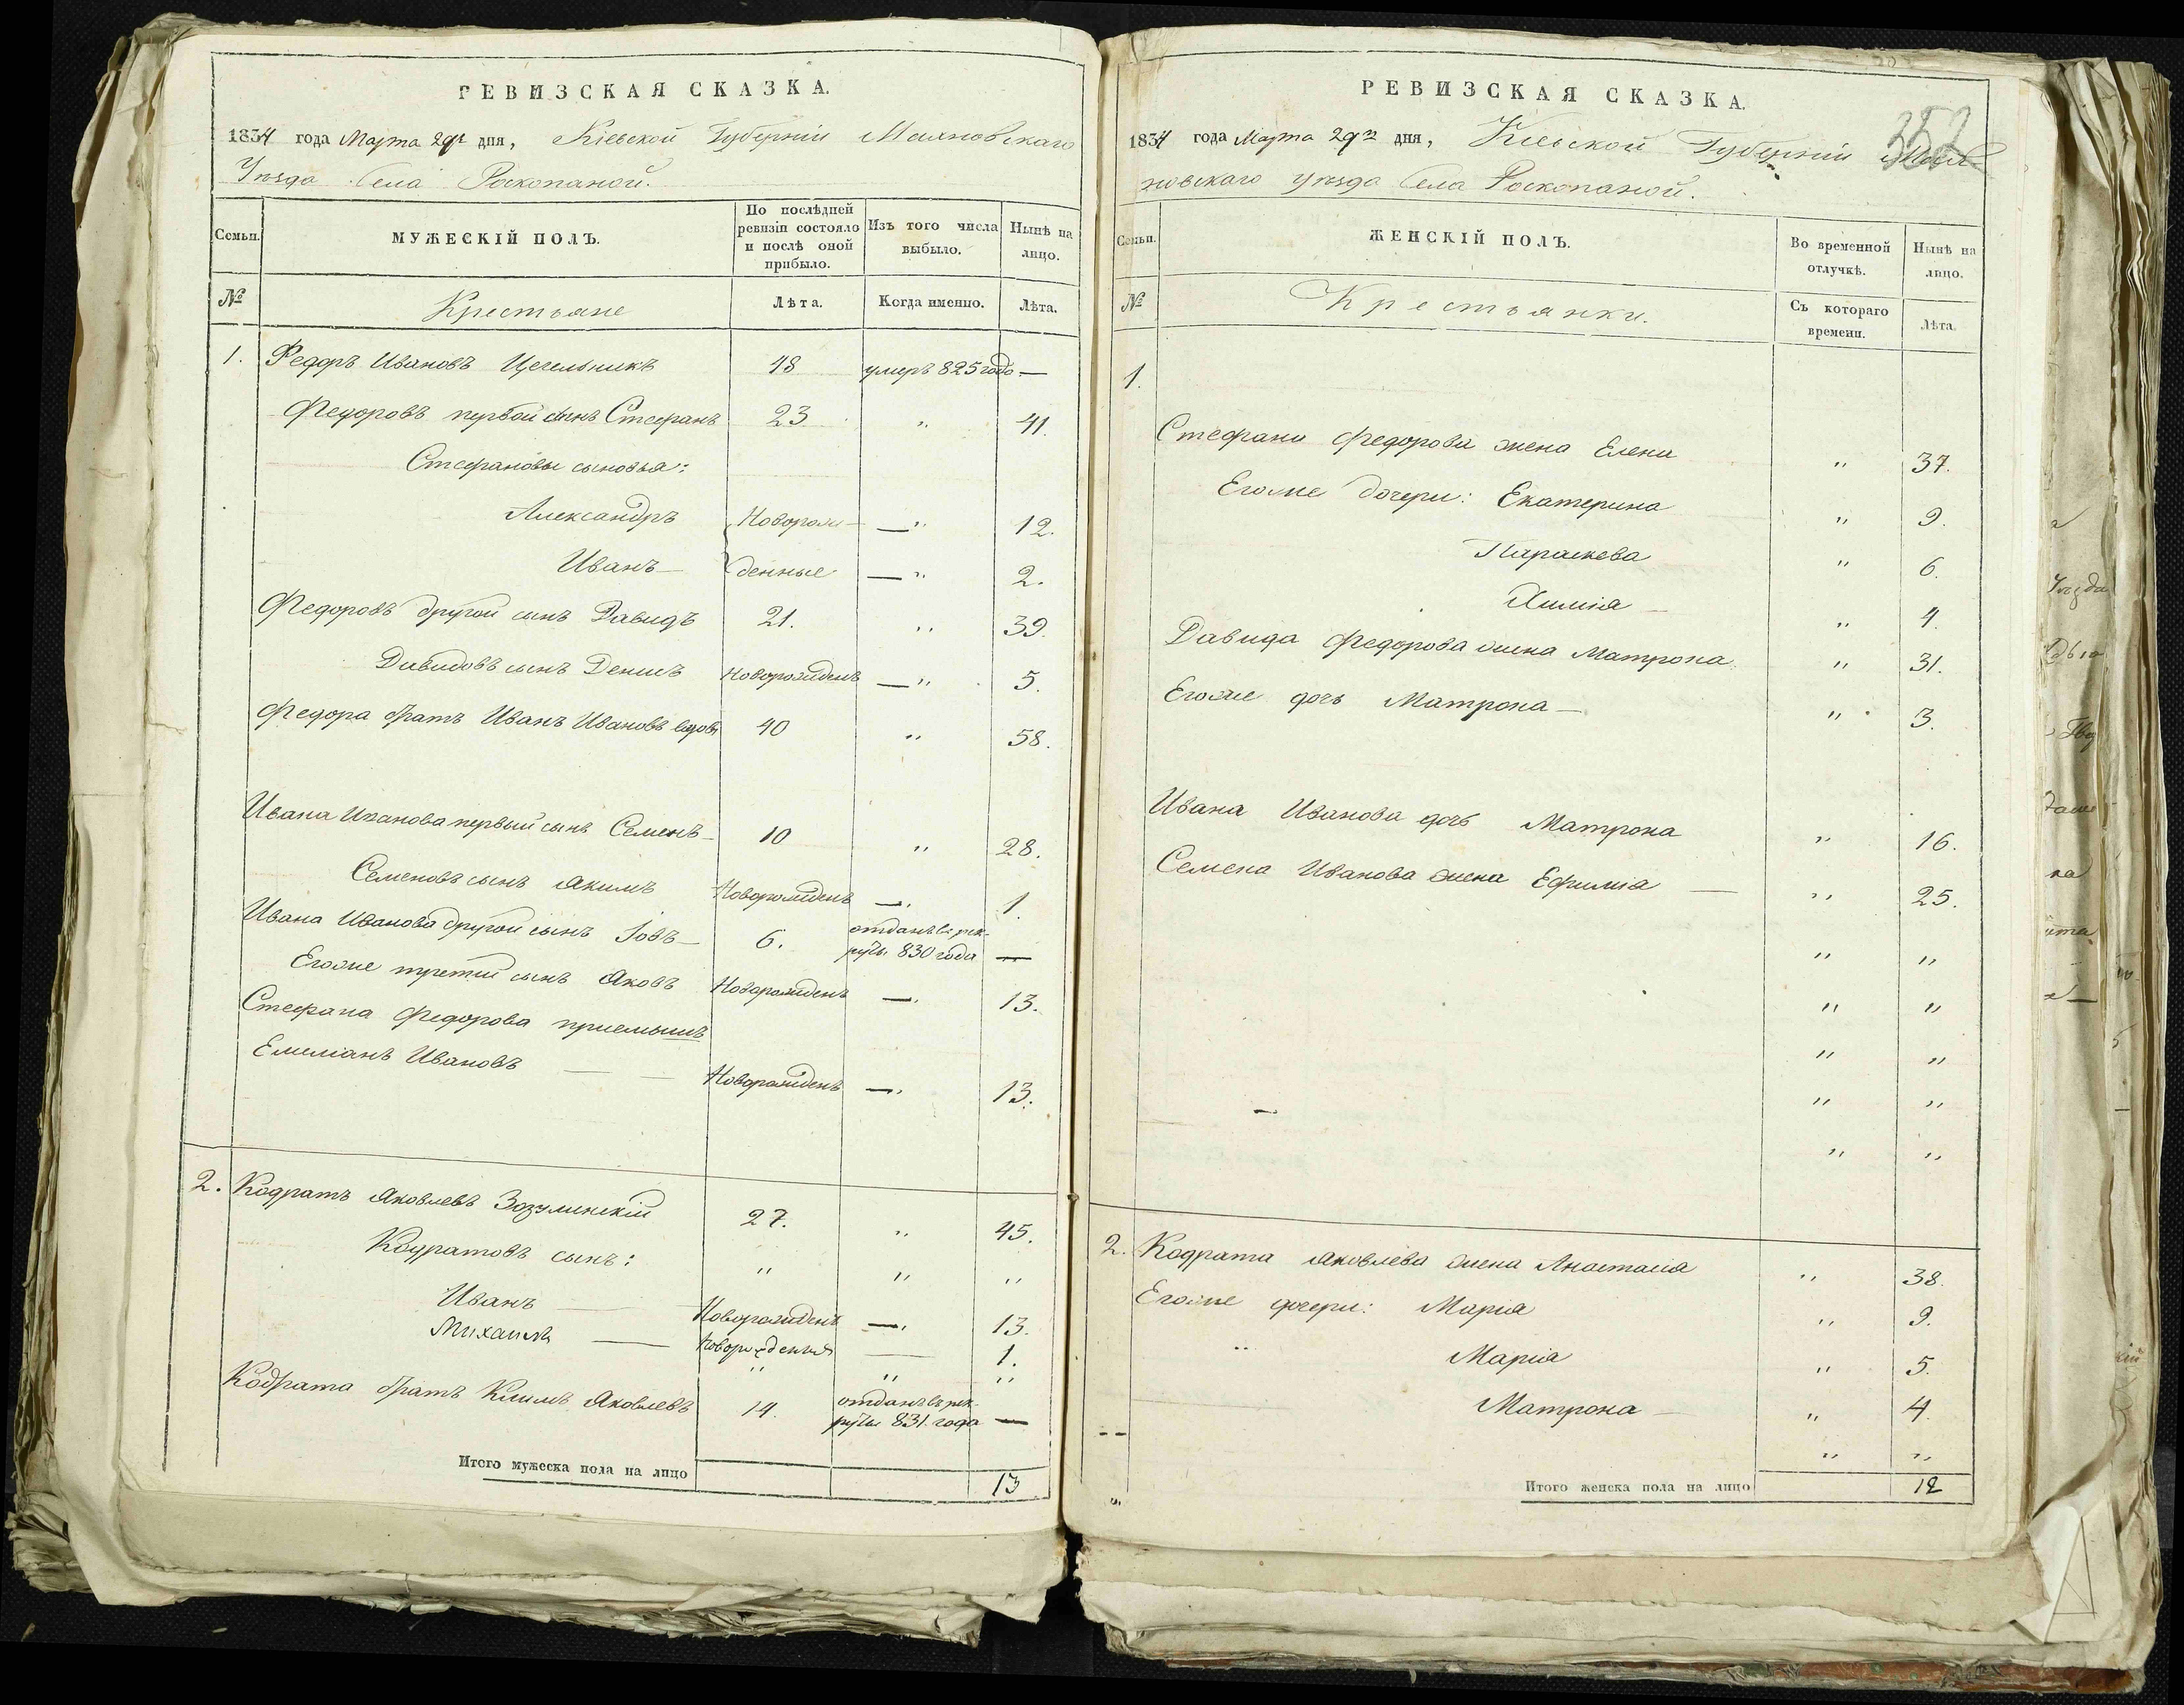 РЕВИЗСКАЯ СКАЗКА.
1834 года Марта 29го дня, Кіевской Губерніи Махновскаго
Уѣзда Села Росконаной.
Семьи.
МУЖЕСКІЙ ПОЛЪ.
По послѣдней ревизіи состояло и послѣ оной прибыло.
Изъ того числа выбыло.
Нынѣ на лицо.
№ Крестьяне Лѣта. Когда именно. Лѣта.
1. Федоръ Ивановъ Цегельникъ 48 умеръ 825 года —
Федоровъ первой сынъ Стефанъ 23 „ 41.
Стефановы сыновья:
Александръ Новорож- — „ 12.
Иванъ — денные — „ 2.
Федоровъ другой сынъ Давидъ 21. „ 39.
Давидовъ сынъ Денисъ Новорожденъ — „ 5.
Федора братъ Иванъ Ивановъ вдовъ 40 „ 58.
Ивана Иванова первый сынъ Семенъ — 10 „ 28.
Семеновъ сынъ Якимъ Новорожденъ — „ 1.
Ивана Иванова другой сынъ Іовъ — 6. отданъ въ рек-
руты 830 года —
Егоже третий сынъ Яковъ Новорожденъ — „ 13.
Стефана Федорова приемышъ
Емелианъ Ивановъ — — Новорожденъ — „ 13.
2. Кодратъ Яковлевъ Зозулинскій 27. „ 45.
Кодратовъ сынъ: „ „ „
Иванъ — Новорожденъ — „ 13.
Михаилъ — новорожденый — 1.
„ „ „
Кодрата братъ Климъ Яковлевъ 14. отданъ въ рек-
руты 831. года —
Итого мужеска пола на лицо 13
РЕВИЗСКАЯ СКАЗКА.
352
1834 года Марта 29го дня, Кіевской Губерніи Мах-
новскаго Уѣзда Села Росконаной.
Семьи.
ЖЕНСКІЙ ПОЛЪ.
Во временной отлучкѣ.
Нынѣ на лицо.
№ Крестьянки. Съ котораго времени. Лѣта.
1.
Стефана Федорова жена Елена „ 37.
Егоже дочери: Екатерина „ 9.
Параскева „ 6.
Химія — „ 4.
Давида Федорова жена Матрона „ 31.
Егоже дочь Матрона — „ 3.
Ивана Иванова дочь Матрона „ 16.
Семена Иванова жена Ефимія — „ 25.
„ „
„ „
„ „
„ „
„ „
2. Кодрата Яковлева жена Анастасіа „ 38.
Егоже дочери: Маріа „ 9.
„ Маріа „ 5.
Матрона — „ 4.
„ „
Итого женска пола на лицо 12